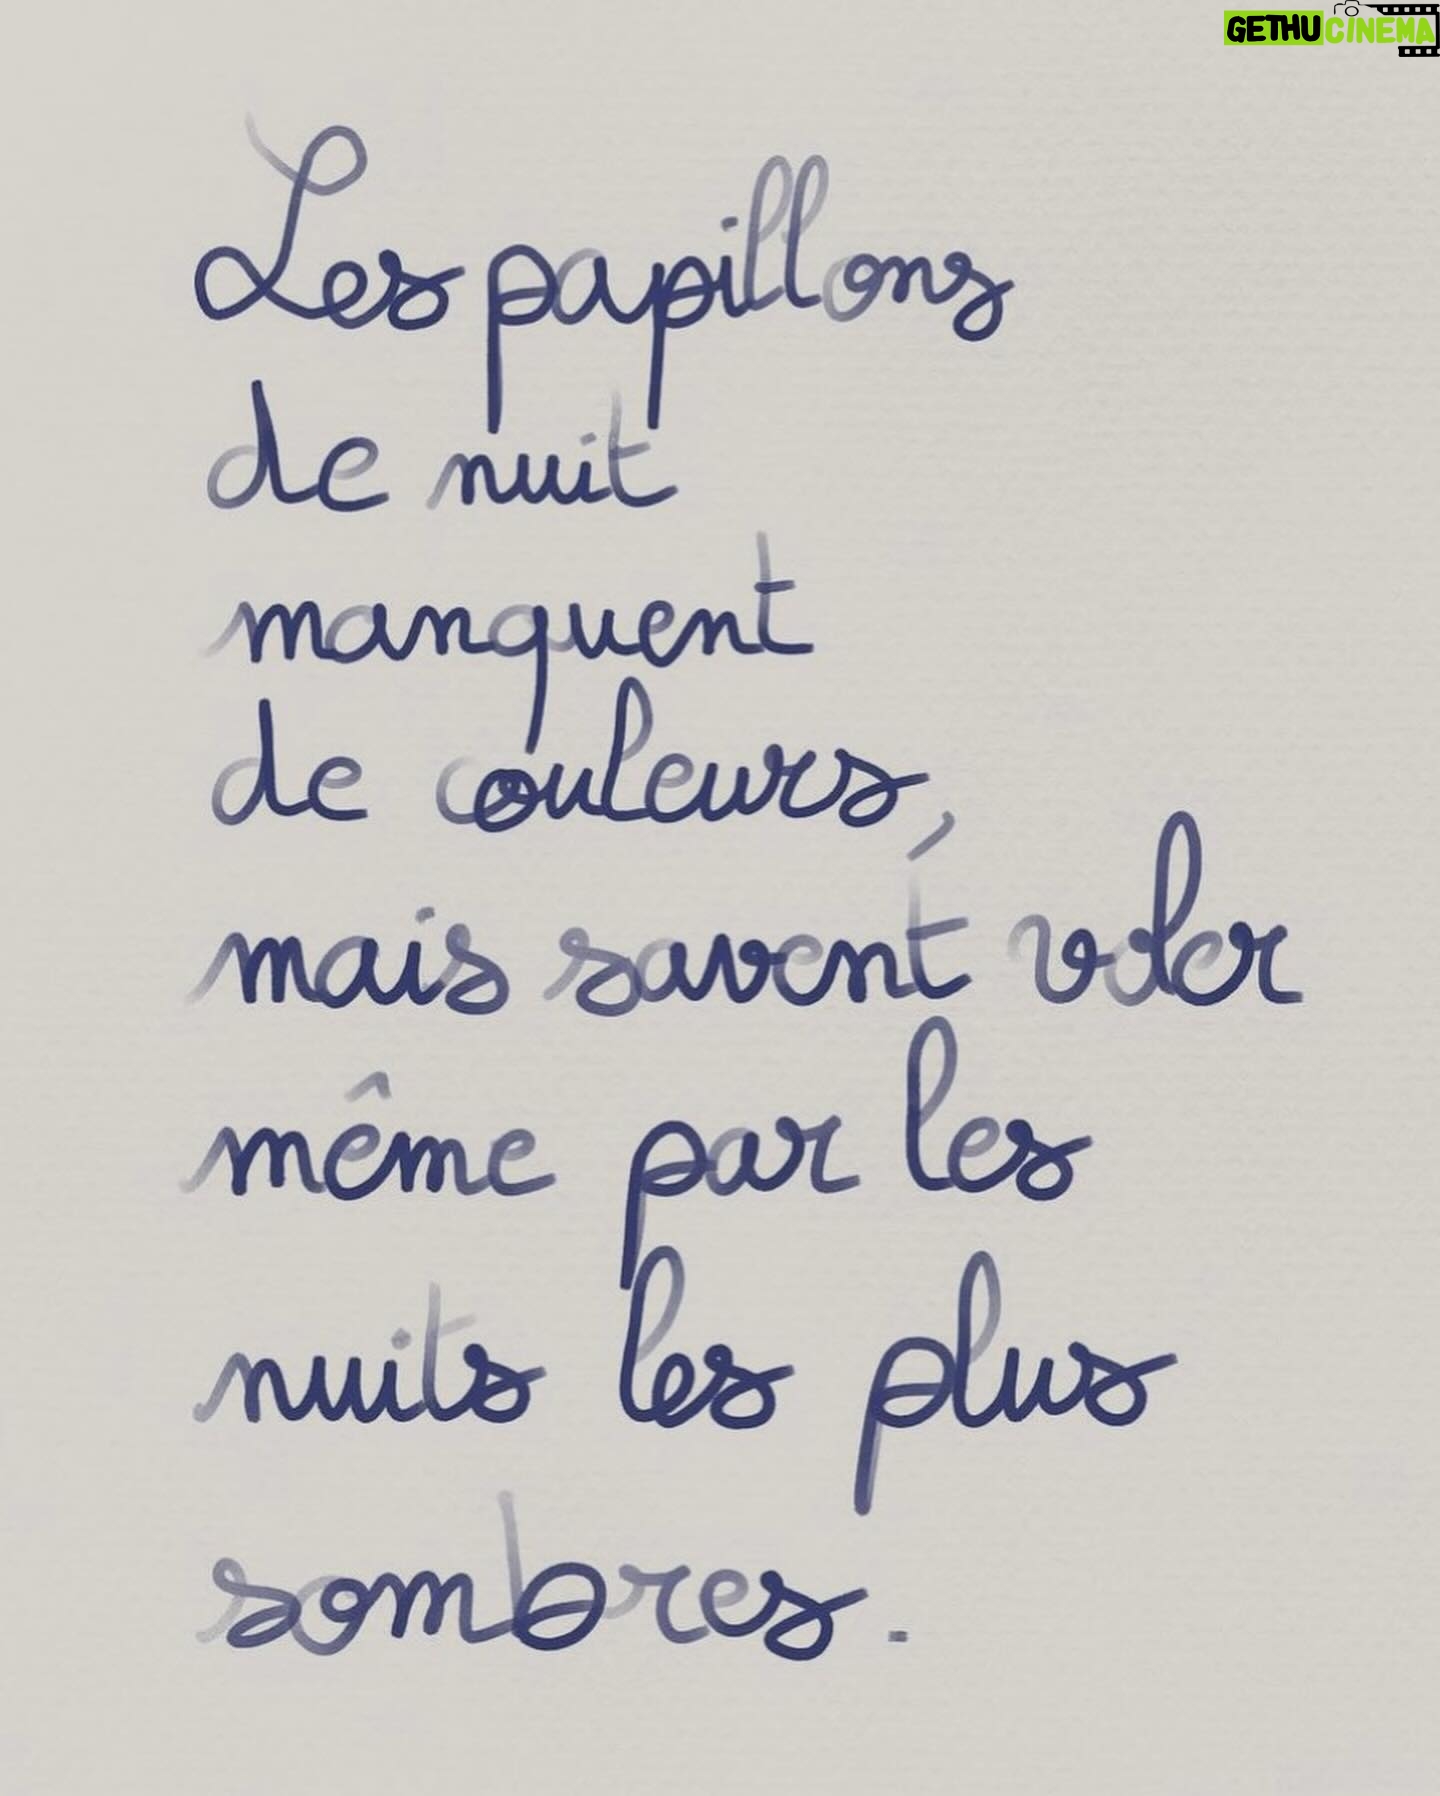 GETHUCINEMA
Les papillons
de nuit
manquent
de couleurs,
mais savent voler
même par les
nuits les plus
sombres.